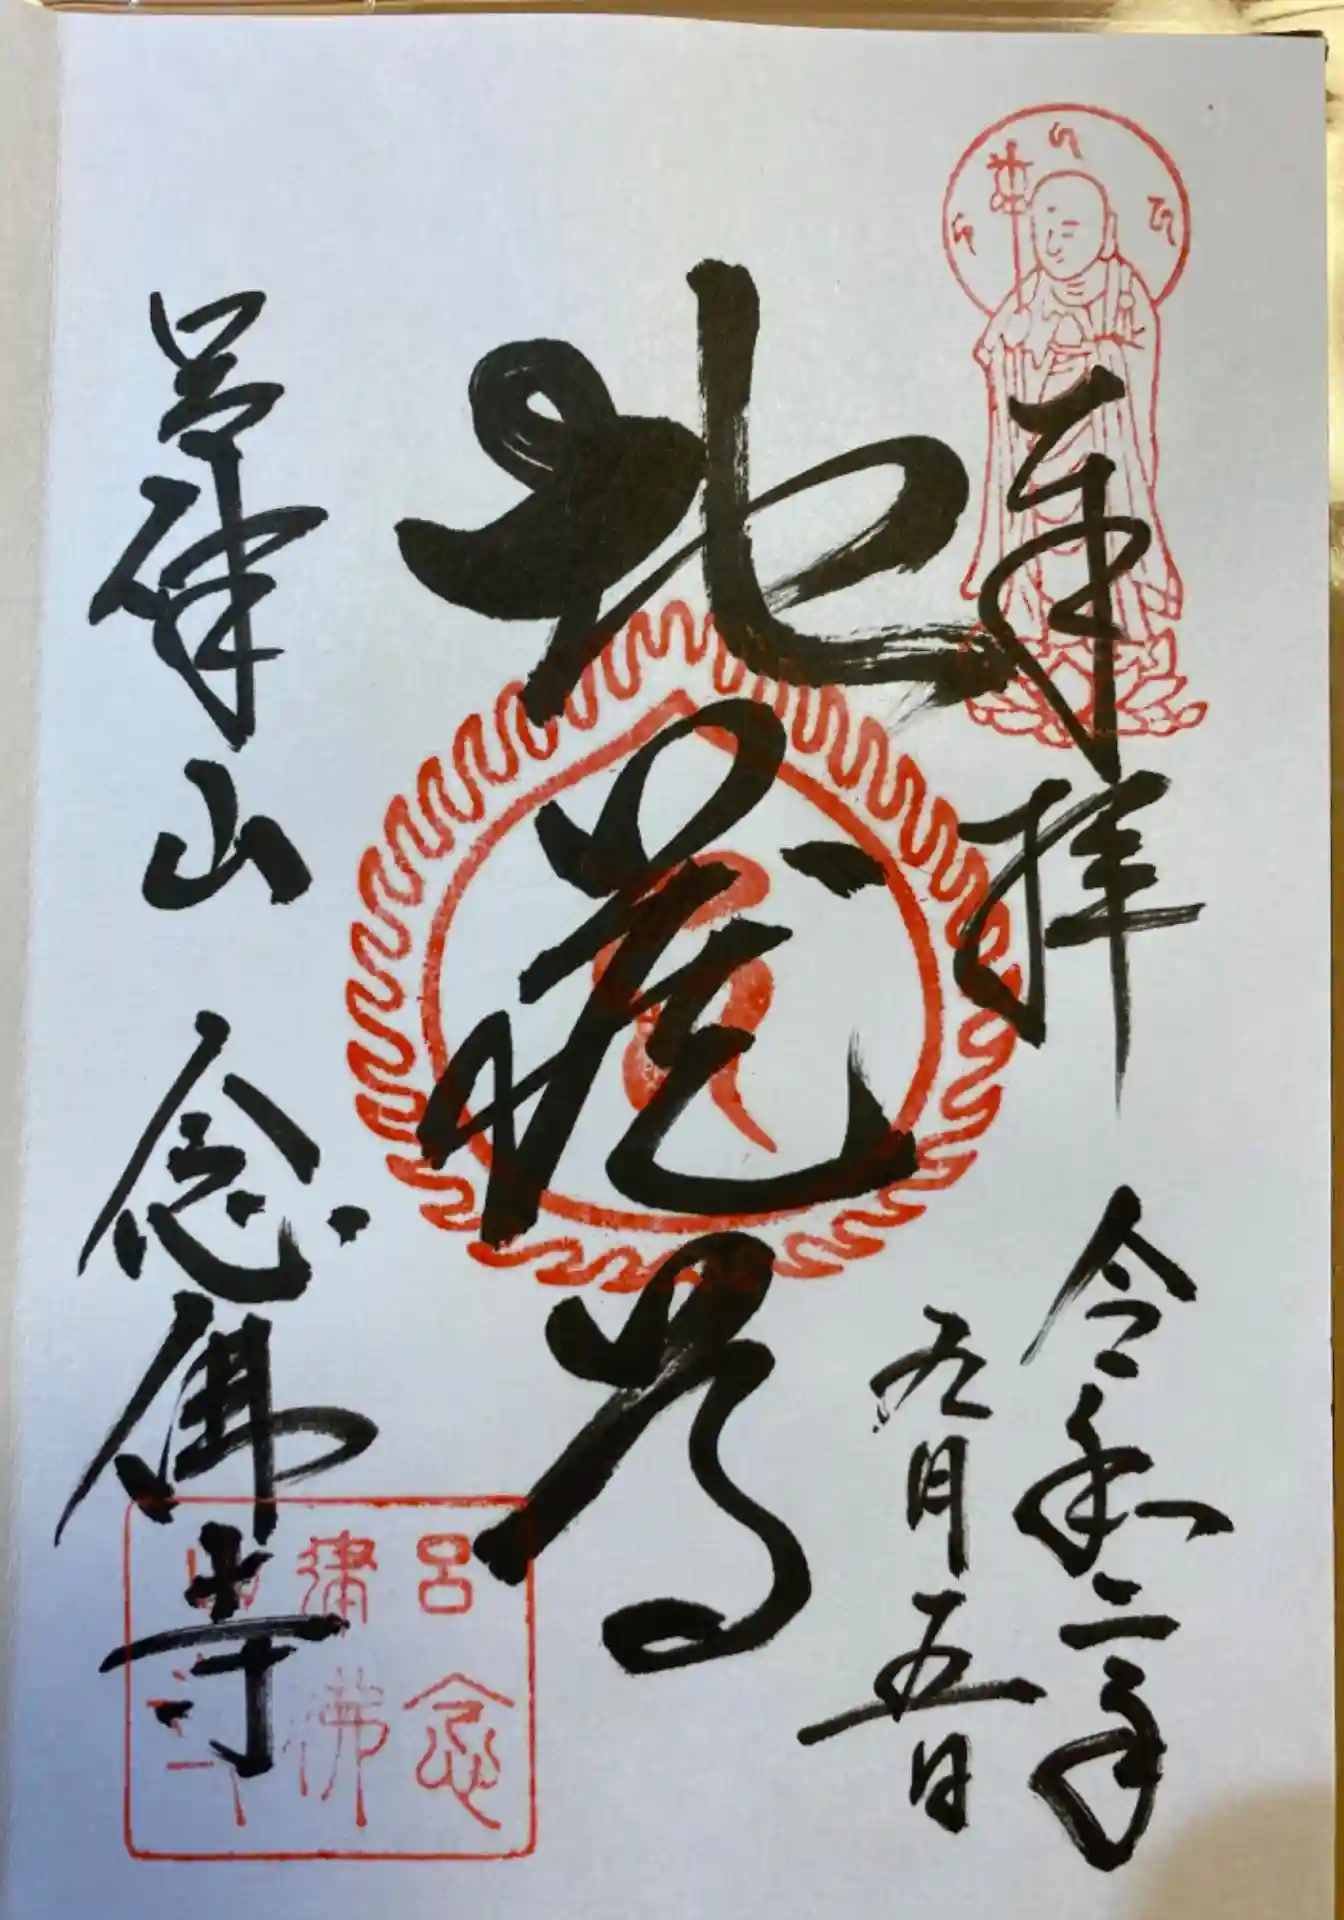 奉拝
令和二年
九月五日
地蔵尊
呂律山 念佛寺
呂律山
念佛寺